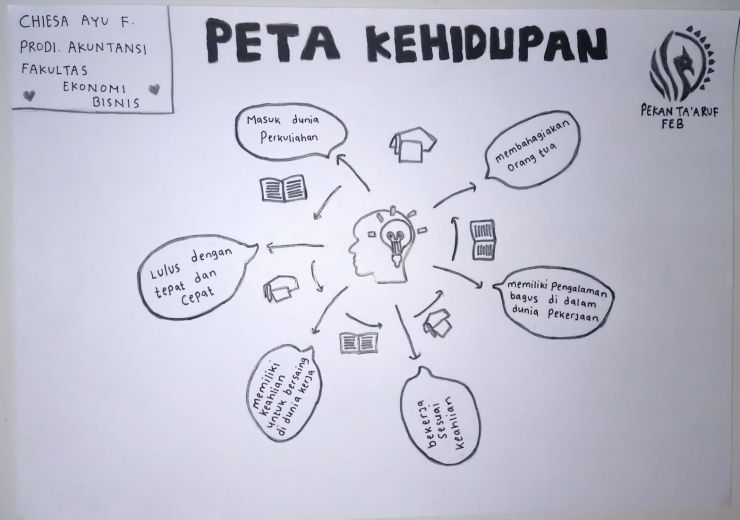 CHIESA AYU F.
PRODI. AKUNTANSI
FAKULTAS
EKONOMI
BISNIS
PETA KEHIDUPAN
PEKAN TA'ARUF
FEB
Masuk dunia
Perkuliahan
membahagiakan
orang tua
Lulus dengan
tepat dan
cepat
memiliki Pengalaman
bagus di dalam
dunia Pekerjaan
memiliki
keahlian
untuk bersaing
di dunia kerja
bekerja
sesuai
keahlian